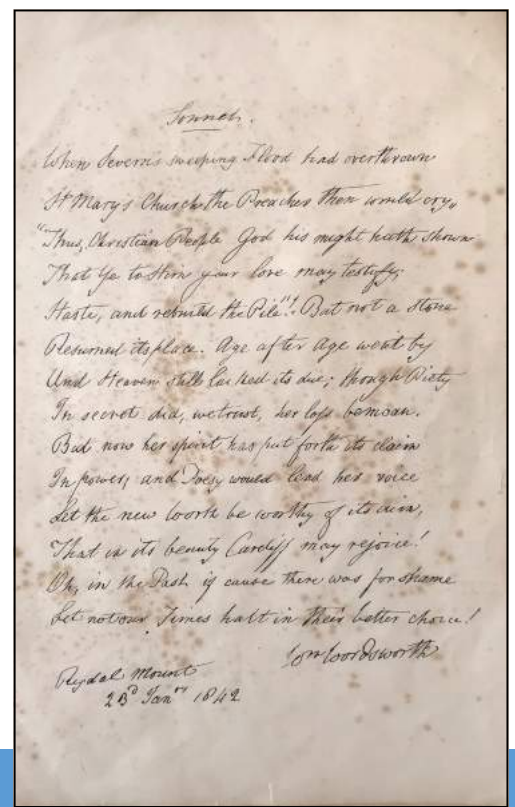 Sonnet.
When Severn's sweeping Flood had overthrown
St Mary's Church the Preacher then would cry,,
"Thus, Christian People God his might hath shown
That Ye to Him your love may testify;
Haste, and rebuild the Pile"! But not a stone
Resumed its place. Age after Age went by
And Heaven still lacked its due; though Piety
In secret did, we trust, her loss bemoan.
But now her spirit has put forth its claim
In power, and Poesy would lend her voice
Let the new Work be worthy of its aim,
That in its beauty Cardiff may rejoice!
Oh, in the Past if cause there was for shame
Let not our Times halt in their better choice!
Wm Wordsworth
Rydal Mount
23d Jany 1842